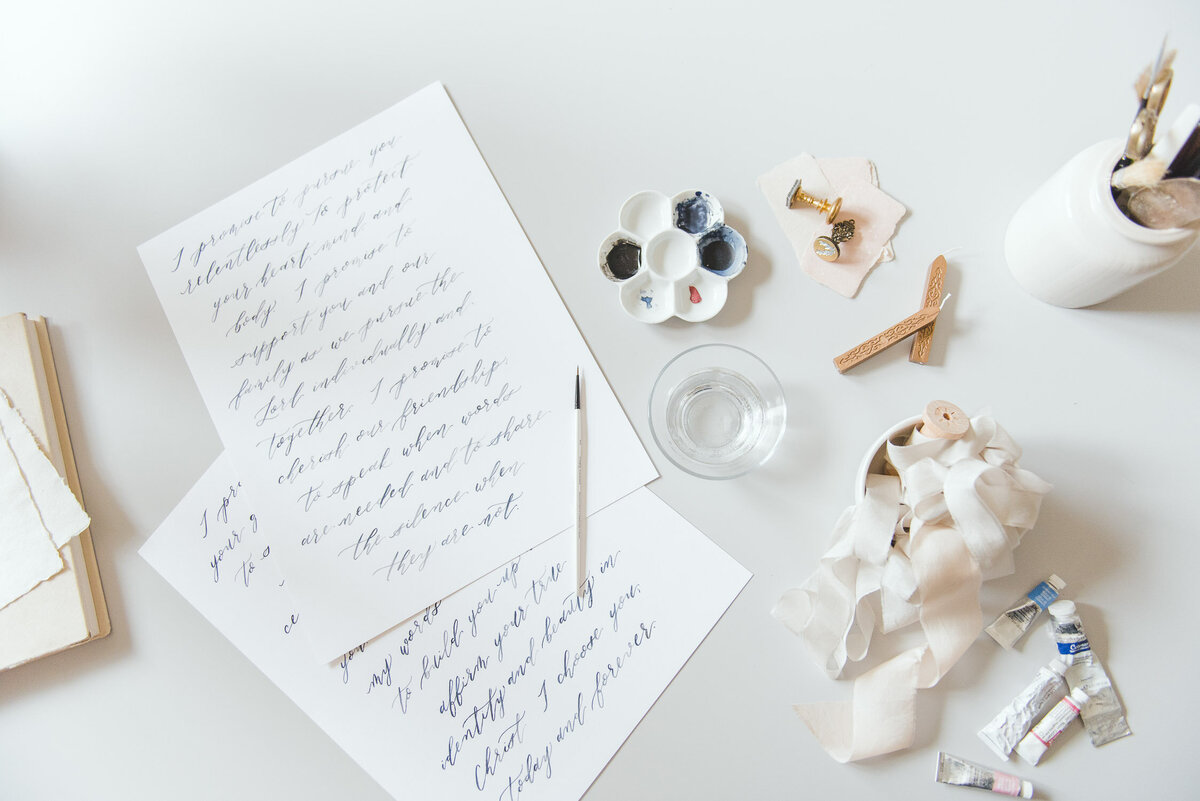 I promise to pursue you
relentlessly to protect
your heart, mind and
body. I promise to
support you and our
family as we pursue the
Lord individually and
together. I promise to
cherish our friendship,
to speak when words
are needed and to share
the silence when
they are not.
I pr
your g
to s
ce
my words
to build you up
affirm your true
identity and beauty in
Christ. I choose you,
today and forever.